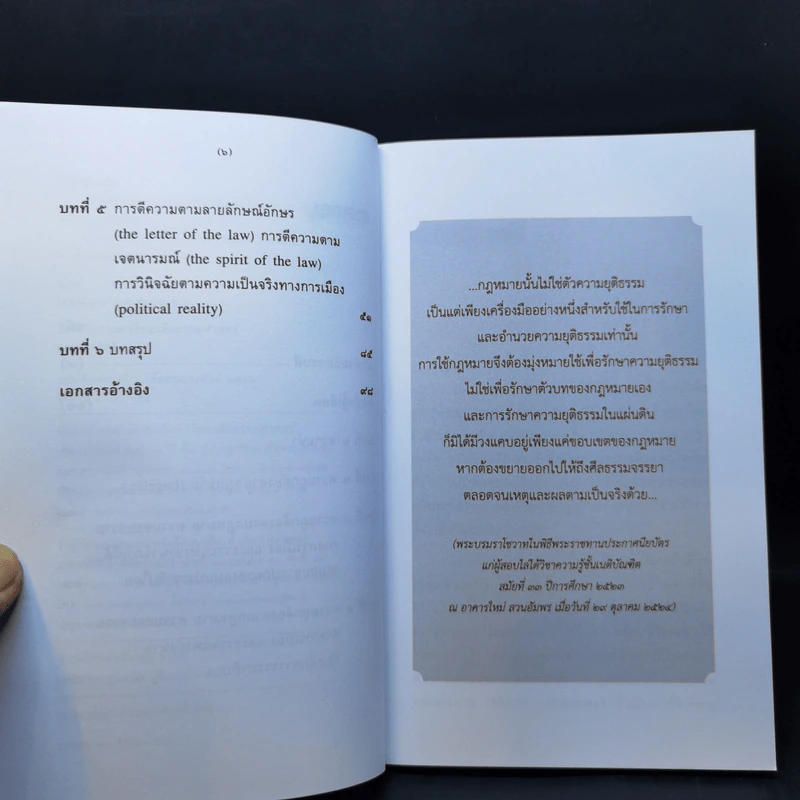 (๖)
บทที่ ๕ การตีความตามลายลักษณ์อักษร
(the letter of the law) การตีความตาม
เจตนารมณ์ (the spirit of the law)
การวินิจฉัยตามความเป็นจริงทางการเมือง
(political reality) ๕๑
บทที่ ๖ บทสรุป ๘๕
เอกสารอ้างอิง ๙๘
...กฎหมายนั้นไม่ใช่ตัวความยุติธรรม
เป็นแต่เพียงเครื่องมืออย่างหนึ่งสำหรับใช้ในการรักษา
และอำนวยความยุติธรรมเท่านั้น
การใช้กฎหมายจึงต้องมุ่งหมายใช้เพื่อรักษาความยุติธรรม
ไม่ใช่เพื่อรักษาตัวบทของกฎหมายเอง
และการรักษาความยุติธรรมในแผ่นดิน
ก็มิได้มีวงแคบอยู่เพียงแค่ขอบเขตของกฎหมาย
หากต้องขยายออกไปให้ถึงศีลธรรมจรรยา
ตลอดจนเหตุและผลตามเป็นจริงด้วย...
(พระบรมราโชวาทในพิธีพระราชทานประกาศนียบัตร
แก่ผู้สอบไล่ได้วิชาความรู้ชั้นเนติบัณฑิต
สมัยที่ ๓๓ ปีการศึกษา ๒๕๒๓
ณ อาคารใหม่ สวนอัมพร เมื่อวันที่ ๒๙ ตุลาคม ๒๕๒๔)